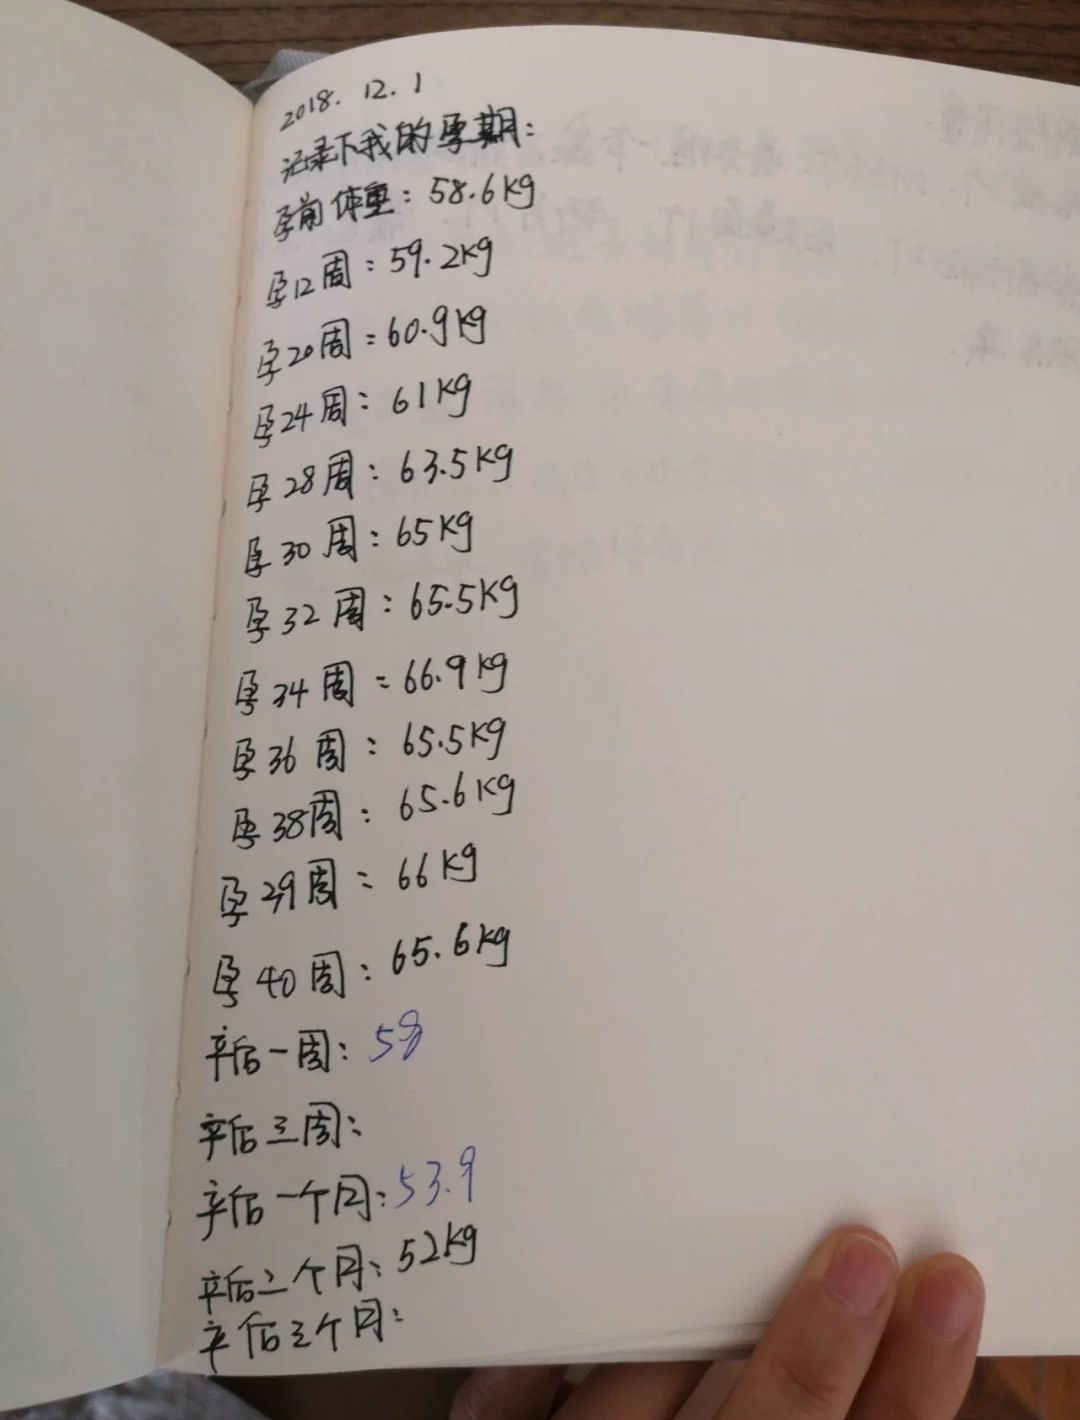 2018.12.1
记录下我的孕期：
孕前体重：58.6kg
孕12周：59.2kg
孕20周：60.9kg
孕24周：61kg
孕28周：63.5kg
孕30周：65kg
孕32周：65.5kg
孕34周：66.9kg
孕36周：65.5kg
孕38周：65.6kg
孕39周：66kg
孕40周：65.6kg
产后一周：58
产后三周：
产后一个月：53.9
产后二个月：52kg
产后三个月：